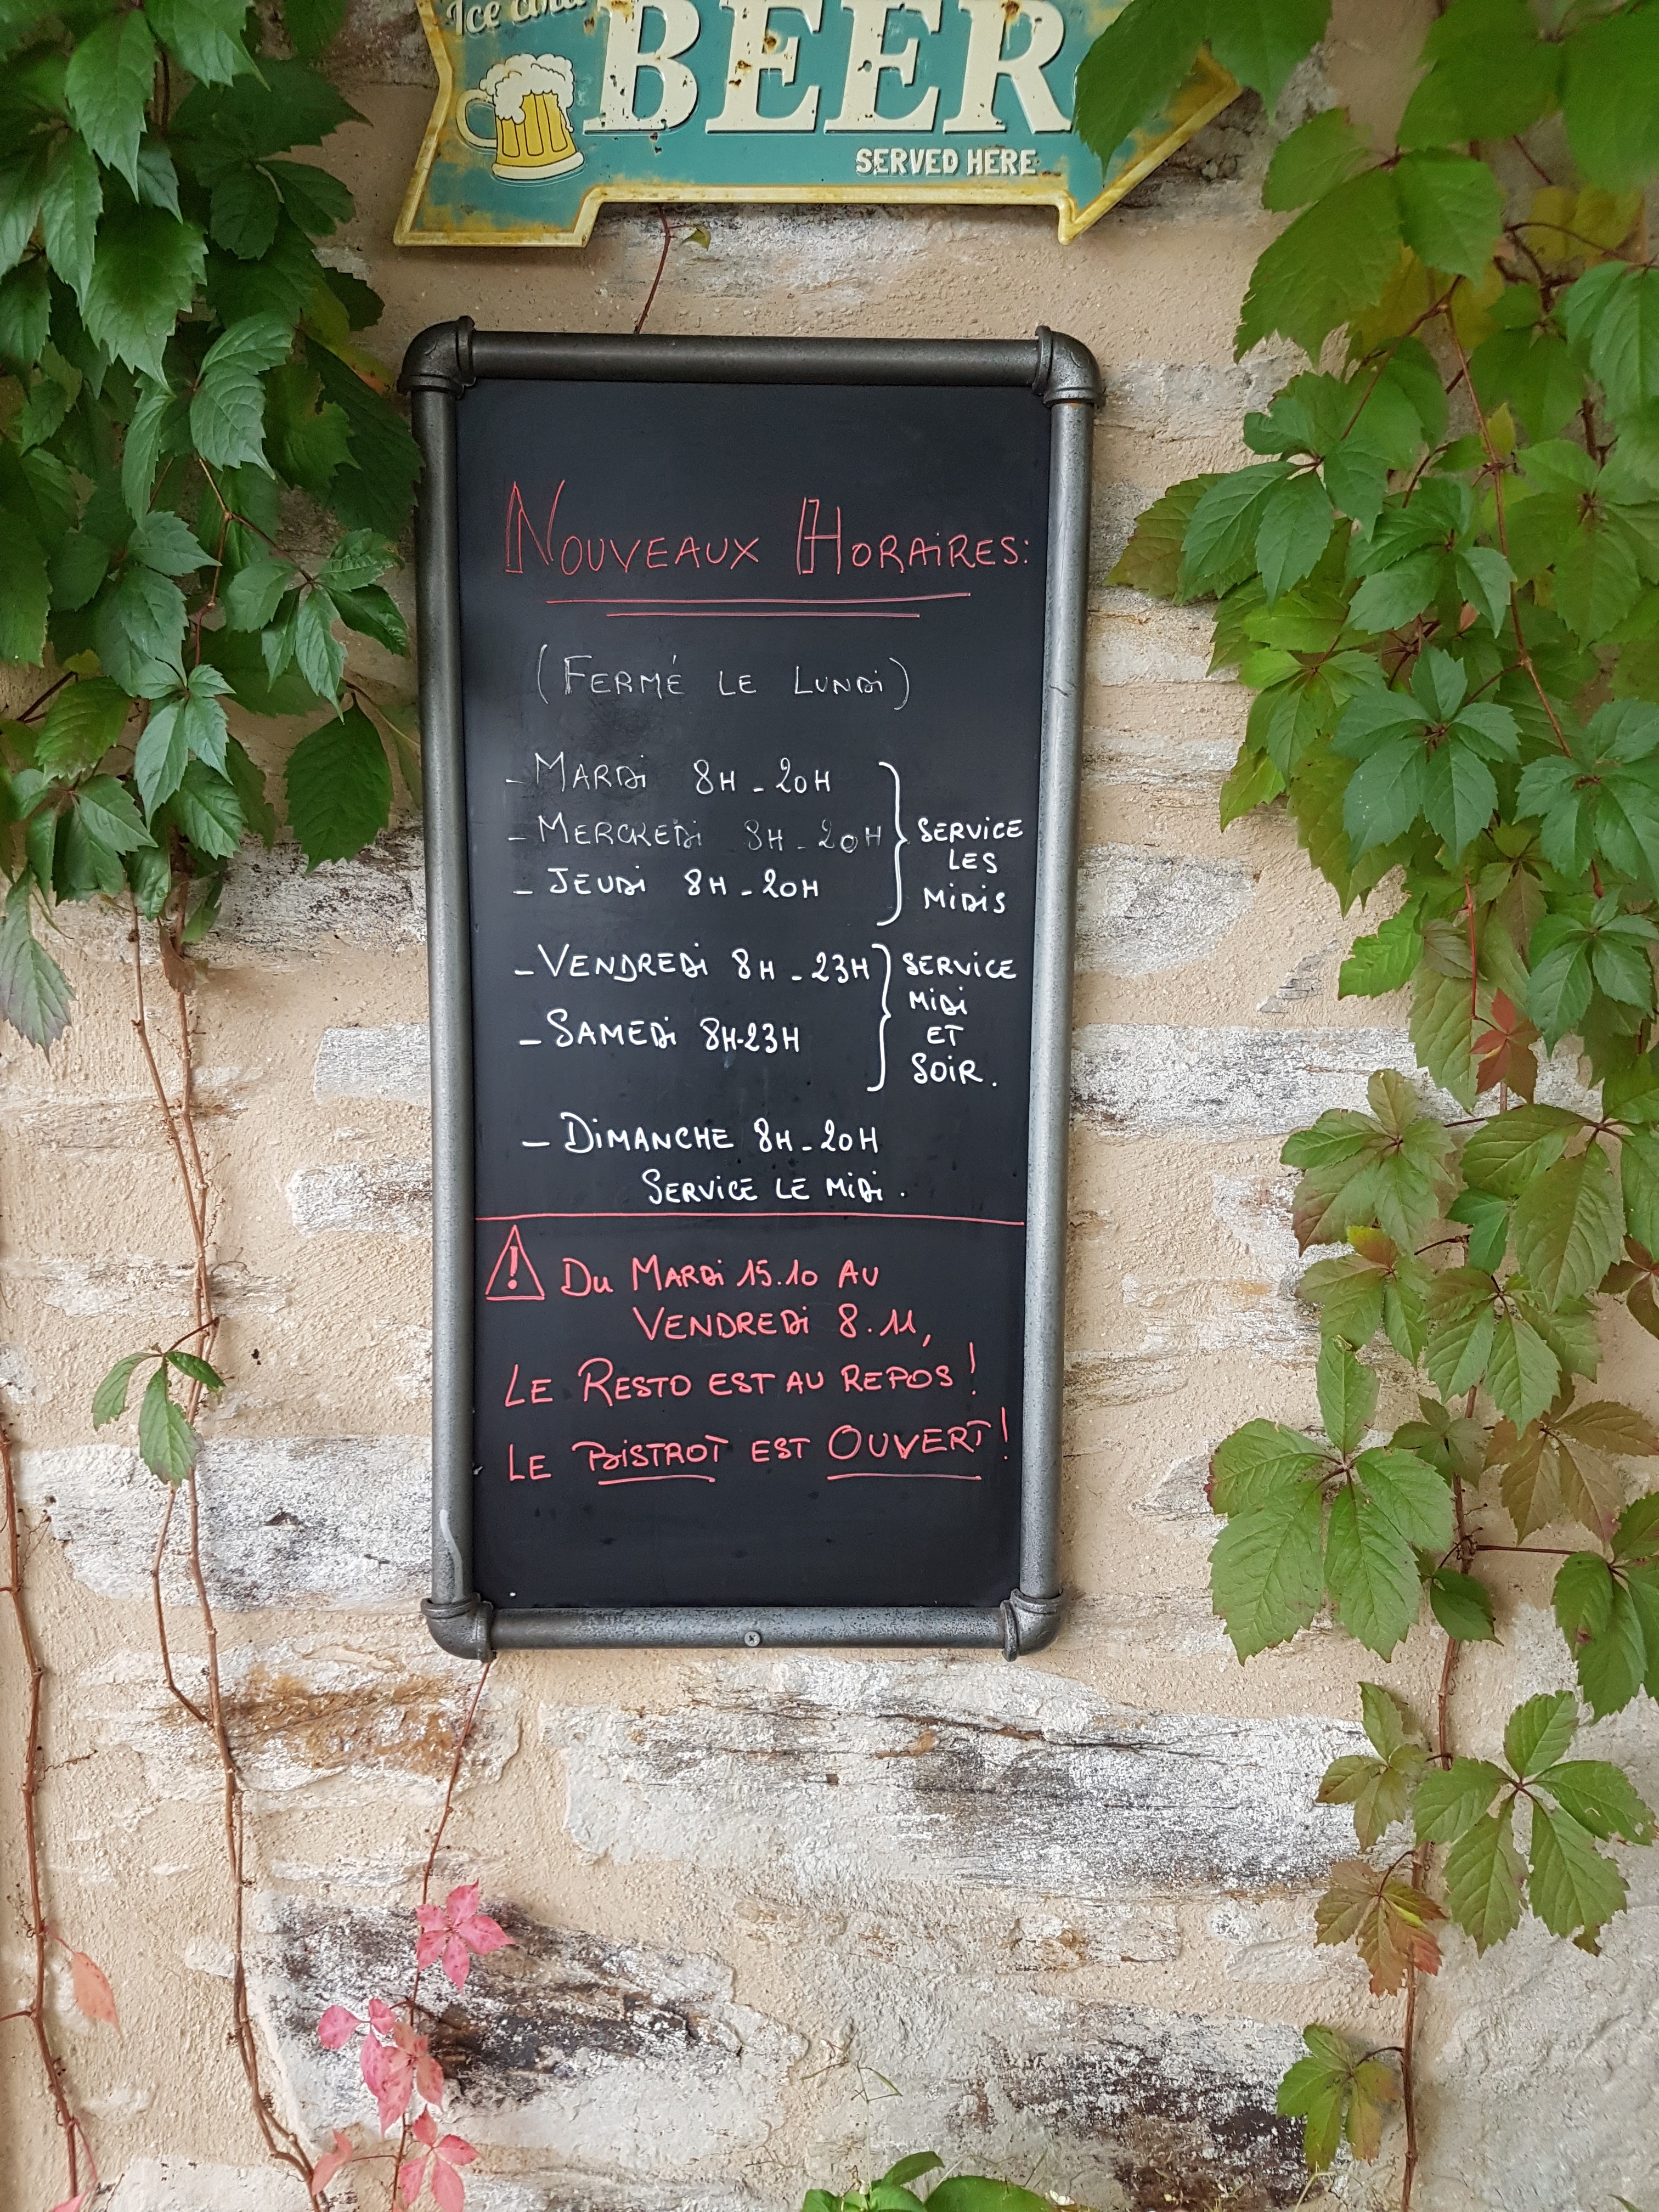 Ice and
BEER
SERVED HERE
NOUVEAUX HORAiRES:
(FERMÉ LE LUNDi)
- MARDi 8H - 20H
- MERCREDi 8H - 20H
- JEUDi 8H - 20H
SERViCE
LES
MiDiS
- VENDREDi 8H - 23H
- SAMEDi 8H-23H
SERViCE
MiDi
ET
SOiR.
- DiMANCHE 8H - 20H
SERViCE LE MiDi.
! DU MARDi 15.10 AU
VENDREDi 8.11,
LE RESTO EST AU REPOS!
LE BiSTROT EST OUVERT!